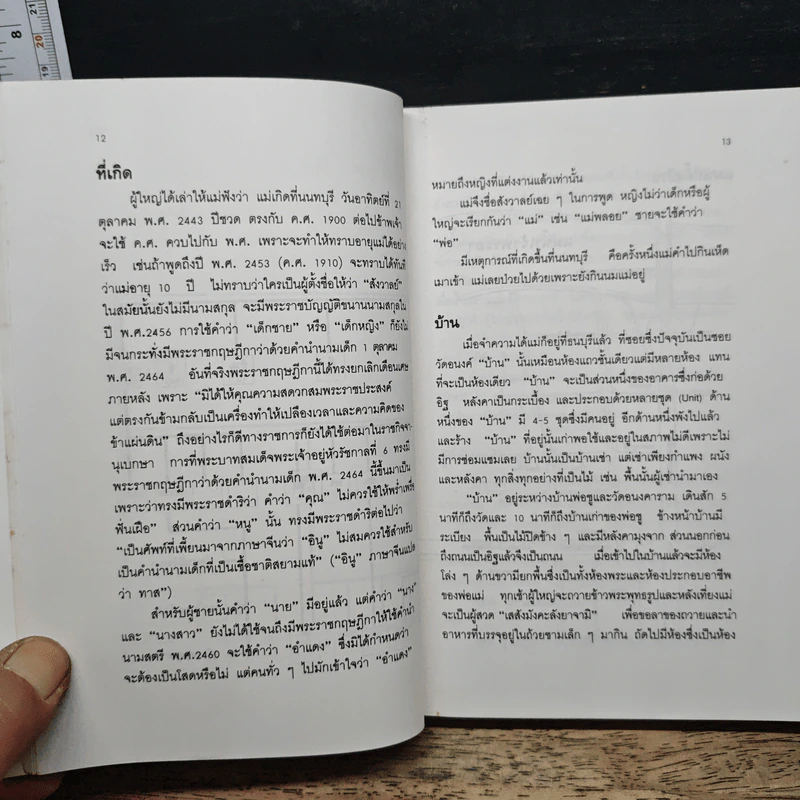 8
20
21
19
12
ที่เกิด
ผู้ใหญ่ได้เล่าให้แม่ฟังว่า แม่เกิดที่นนทบุรี วันอาทิตย์ที่ 21
ตุลาคม พ.ศ. 2443 ปีชวด ตรงกับ ค.ศ. 1900 ต่อไปข้าพเจ้า
จะใช้ ค.ศ. ควบไปกับ พ.ศ. เพราะจะทำให้ทราบอายุแม่ได้อย่าง
เร็ว เช่นถ้าพูดถึงปี พ.ศ. 2453 (ค.ศ. 1910) จะทราบได้ทันที
ว่าแม่อายุ 10 ปี ไม่ทราบว่าใครเป็นผู้ตั้งชื่อให้ว่า “สังวาลย์”
ในสมัยนั้นยังไม่มีนามสกุล จะมีพระราชบัญญัติขนานนามสกุลใน
ปี พ.ศ.2456 การใช้คำว่า “เด็กชาย” หรือ “เด็กหญิง” ก็ยังไม่
มีจนกระทั่งมีพระราชกฤษฎีกาว่าด้วยคำนำนามเด็ก 1 ตุลาคม
พ.ศ. 2464 อันที่จริงพระราชกฤษฎีกานี้ได้ทรงยกเลิกเดือนเศษ
ภายหลัง เพราะ “มิได้ให้คุณความสดวกสมพระราชประสงค์
แต่ตรงกันข้ามกลับเป็นเครื่องทำให้เปลืองเวลาและความคิดของ
ข้าแผ่นดิน” ถึงอย่างไรก็ดีทางราชการก็ยังได้ใช้ต่อมาในราชกิจจา-
นุเบกษา การที่พระบาทสมเด็จพระเจ้าอยู่หัวรัชกาลที่ 6 ทรงมี
พระราชกฤษฎีกาว่าด้วยคำนำนามเด็ก พ.ศ. 2464 นี้ขึ้นมาเป็น
เพราะว่าทรงมีพระดำริว่า คำว่า “คุณ” ไม่ควรใช้ให้พร่ำเพรื่อ
ฟั่นเฝือ ส่วนคำว่า “หนู” นั้น ทรงมีพระราชดำริต่อไปว่า
“เป็นศัพท์ที่เพี้ยนมาจากภาษาจีนว่า “อินู” ไม่สมควรใช้สำหรับ
เป็นคำนำนามเด็กที่เป็นเชื้อชาติสยามแท้” (“อินู” ภาษาจีนแปล
ว่า ทาส”)
สำหรับผู้ชายนั้นคำว่า “นาย” มีอยู่แล้ว แต่คำว่า “นาง”
และ “นางสาว” ยังไม่ได้ใช้จนถึงมีพระราชกฤษฎีกาให้ใช้คำนำ
นามสตรี พ.ศ.2460 จะใช้คำว่า “อำแดง” ซึ่งมิได้กำหนดว่า
จะต้องเป็นโสดหรือไม่ แต่คนทั่ว ๆ ไปมักเข้าใจว่า “อำแดง”
13
หมายถึงหญิงที่แต่งงานแล้วเท่านั้น
แม่จึงชื่อสังวาลย์เฉย ๆ ในการพูด หญิงไม่ว่าเด็กหรือผู้
ใหญ่จะเรียกกันว่า “แม่” เช่น “แม่พลอย” ชายจะใช้คำว่า
“พ่อ”
มีเหตุการณ์ที่เกิดขึ้นที่นนทบุรี คือครั้งหนึ่งแม่คำไปกินเห็ด
เมาเข้า แม่เลยป่วยไปด้วยเพราะยังกินนมแม่อยู่
บ้าน
เมื่อจำความได้แม่ก็อยู่ที่ธนบุรีแล้ว ที่ซอยซึ่งปัจจุบันเป็นซอย
วัดอนงค์ “บ้าน” นั้นเหมือนห้องแถวชั้นเดียวแต่มีหลายห้อง แทน
ที่จะเป็นห้องเดียว “บ้าน” จะเป็นส่วนหนึ่งของอาคารซึ่งก่อด้วย
อิฐ หลังคาเป็นกระเบื้อง และประกอบด้วยหลายชุด (Unit) ด้าน
หนึ่งของ “บ้าน” มี 4-5 ชุดซึ่งมีคนอยู่ อีกด้านหนึ่งพังไปแล้ว
และร้าง “บ้าน” ที่อยู่นั้นเก่าพอใช้และอยู่ในสภาพไม่ดีเพราะไม่
มีการซ่อมแซมเลย บ้านนั้นเป็นบ้านเช่า แต่เช่าเพียงกำแพง ผนัง
และหลังคา ทุกสิ่งทุกอย่างที่เป็นไม้ เช่น พื้นนั้นผู้เช่านำมาเอง
“บ้าน” อยู่ระหว่างบ้านพ่อชูและวัดอนงคาราม เดินสัก 5
นาทีก็ถึงวัดและ 10 นาทีก็ถึงบ้านเก่าของพ่อชู ข้างหน้าบ้านมี
ระเบียง พื้นเป็นไม้ปิดข้าง ๆ และมีหลังคามุงจาก ส่วนนอกก่อน
ถึงถนนเป็นอิฐแล้วจึงเป็นถนน เมื่อเข้าไปในบ้านแล้วจะมีห้อง
โล่ง ๆ ด้านขวามียกพื้นซึ่งเป็นทั้งห้องพระและห้องประกอบอาชีพ
ของพ่อแม่ ทุกเช้าผู้ใหญ่จะถวายข้าวพระพุทธรูปและหลังเที่ยงแม่
จะเป็นผู้สวด “เสสังมังคะลังยาจามิ” เพื่อขอลาของถวายและนำ
อาหารที่บรรจุอยู่ในถ้วยชามเล็ก ๆ มากิน ถัดไปมีห้องซึ่งเป็นห้อง